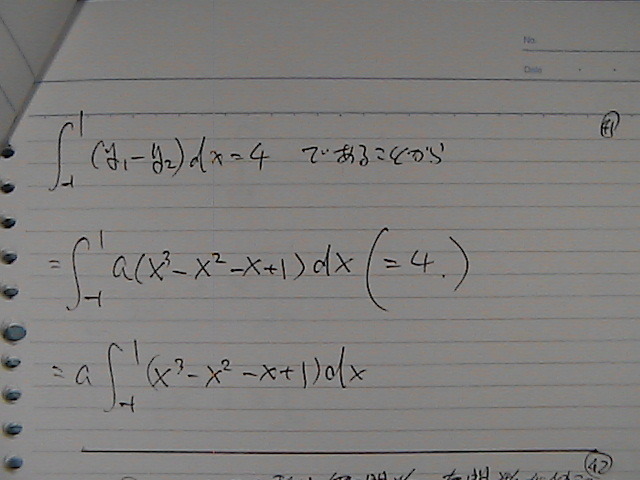 No.
Date
41
∫₋₁¹ (y₁−y₂)dx=4 であることから
=∫₋₁¹ a(x³−x²−x+1)dx (=4.)
=a∫₋₁¹ (x³−x²−x+1)dx
42